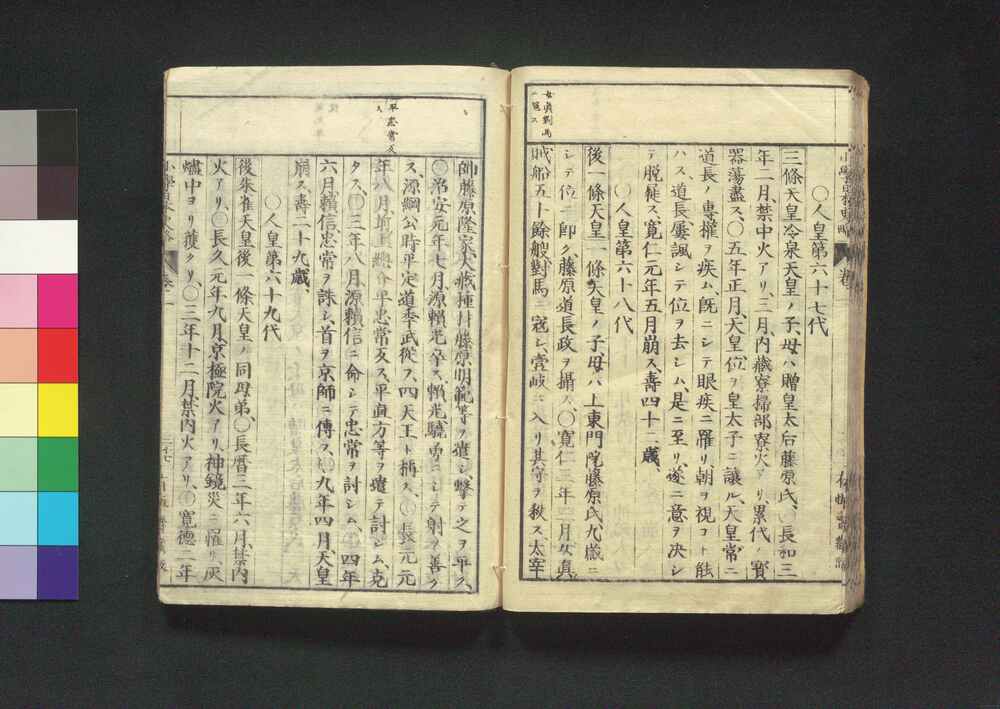 女真對馬
ニ冦ス
〇人皇第六十七代
三條天皇冷泉天皇ノ子、母ハ贈皇太后藤原氏、〇長和三
年二月、禁中火アリ、三月、内藏寮掃部寮火アリ、累代ノ寳
器蕩盡ス、〇五年正月、天皇位ヲ皇太子ニ讓ル、天皇常ニ
道長ノ專權ヲ疾ム、既ニシテ眼疾ニ罹リ朝ヲ視コト能
ハス、道長屢諷シテ位ヲ去シム、是ニ至リ遂ニ意ヲ决シ
テ脱屣ス、寛仁元年五月崩ス、壽四十二歳、
〇人皇第六十八代
後一條天皇一條天皇ノ子、母ハ上東門院藤原氏、九歳ニ
シテ位ニ即ク、藤原道長政ヲ攝ス、〇寛仁三年四月、女真
賊船五十餘艘對馬ニ冦シ、壹岐ニ入リ其守ヲ殺ス、太宰
平忠常反
ス
帥藤原隆家、大藏種材藤原明範等ヲ遣シ、撃テ之ヲ平ク、
〇治安元年七月、源賴光卒ス、賴光驍勇ニシテ射ヲ善ク
ス、源綱公時平定道季武從フ、四天王ト稱ス、〇長元元
年八月、前上總介平忠常反ス、平直方等ヲ遣テ討シム、克
タス、〇三年八月、源賴信ニ命シテ忠常ヲ討シム、〇四年
六月、賴信、忠常ヲ誅シ首ヲ京師ニ傳フ、〇九年四月、天皇
崩ス、壽二十九歳、
〇人皇第六十九代
後朱雀天皇後一條天皇ノ同母弟、〇長暦三年六月、禁内
火アリ、〇長久元年九月、京極院火アリ、神鏡災ニ罹リ、灰
燼中ヨリ獲タリ、〇三年十二月禁内火アリ、〇寛德二年